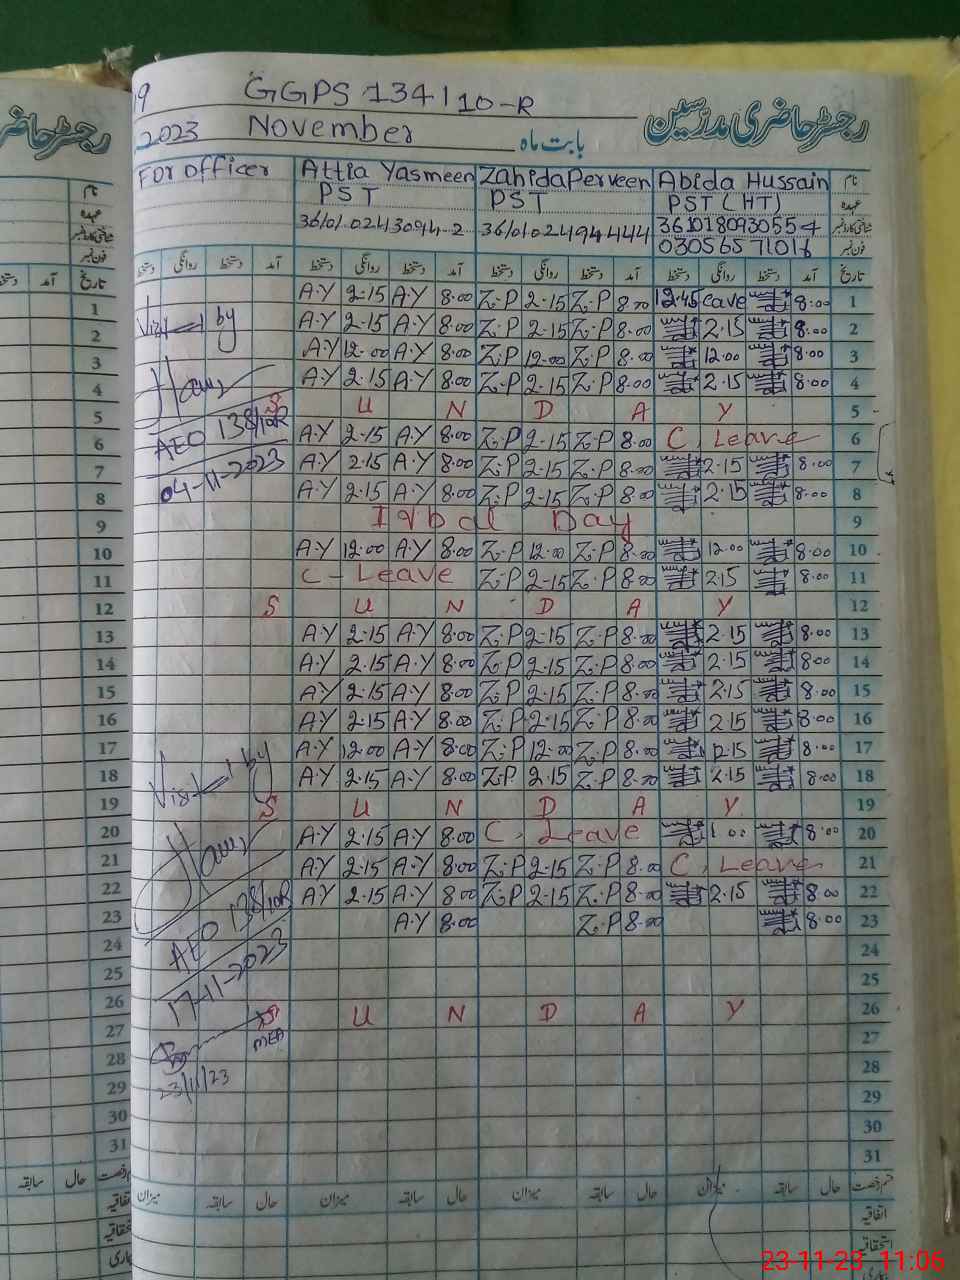 19 GGPS 134/10-R
2023 November بابت ماہ رجسٹر حاضری مدرسین
For officer Attia Yasmeen Zahida Perveen Abida Hussain نام
PST PST PST (HT) عہدہ
36101-0243094-2 36101-02494444 3610180930554 شناختی کارڈ نمبر
03056571016 فون نمبر
دستخط روانگی دستخط آمد دستخط روانگی دستخط آمد دستخط روانگی دستخط آمد دستخط روانگی دستخط آمد تاریخ
A.Y 2.15 A.Y 8.00 Z.P 2.15 Z.P 8.00 12.45 Leave 8.00 1
Visited by A.Y 2.15 A.Y 8.00 Z.P 2.15 Z.P 8.00 2.15 8.00 2
A.Y 12.00 A.Y 8.00 Z.P 12.00 Z.P 8.00 12.00 8.00 3
A.Y 2.15 A.Y 8.00 Z.P 2.15 Z.P 8.00 2.15 8.00 4
S U N D A Y 5
AEO 138/10R A.Y 2.15 A.Y 8.00 Z.P 2.15 Z.P 8.00 C, Leave 6
04-11-2023 A.Y 2.15 A.Y 8.00 Z.P 2.15 Z.P 8.00 2.15 8.00 7
A.Y 2.15 A.Y 8.00 Z.P 2.15 Z.P 8.00 2.15 8.00 8
Iqbal Day 9
A.Y 12.00 A.Y 8.00 Z.P 12.00 Z.P 8.00 12.00 8.00 10
C - Leave Z.P 2.15 Z.P 8.00 2.15 8.00 11
S U N D A Y 12
A.Y 2.15 A.Y 8.00 Z.P 2.15 Z.P 8.00 2.15 8.00 13
A.Y 2.15 A.Y 8.00 Z.P 2.15 Z.P 8.00 2.15 8.00 14
A.Y 2.15 A.Y 8.00 Z.P 2.15 Z.P 8.00 2.15 8.00 15
A.Y 2.15 A.Y 8.00 Z.P 2.15 Z.P 8.00 2.15 8.00 16
A.Y 12.00 A.Y 8.00 Z.P 12.00 Z.P 8.00 12.15 8.00 17
Visited by A.Y 2.15 A.Y 8.00 Z.P 2.15 Z.P 8.00 2.15 8.00 18
S U N D A Y 19
A.Y 2.15 A.Y 8.00 C, Leave 1.00 8.00 20
A.Y 2.15 A.Y 8.00 Z.P 2.15 Z.P 8.00 C, Leave 21
A.Y 2.15 A.Y 8.00 Z.P 2.15 Z.P 8.00 2.15 8.00 22
AEO 138/10R A.Y 8.00 Z.P 8.00 8.00 23
24
17-11-2023 25
S U N D A Y 26
MEA 27
23/11/23 28
29
30
31
میزان سابقہ حال میزان سابقہ حال میزان سابقہ حال میزان سابقہ حال
اتفاقیہ
استحقاقیہ
23-11-23 11:06